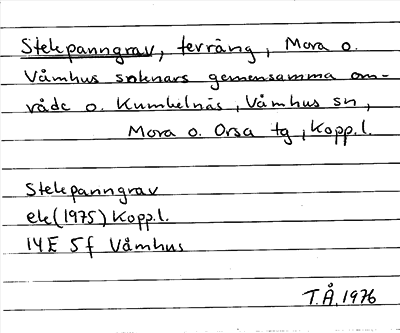 Stekpanngrav, terräng, Mora o.
Våmhus socknars gemensamma om-
råde o. Kumbelnäs, Våmhus sn,
Mora o. Orsa tg, Kopp.l.
Stekpanngrav
ek(1975) Kopp.l.
14E 5f Våmhus
T.Å. 1976